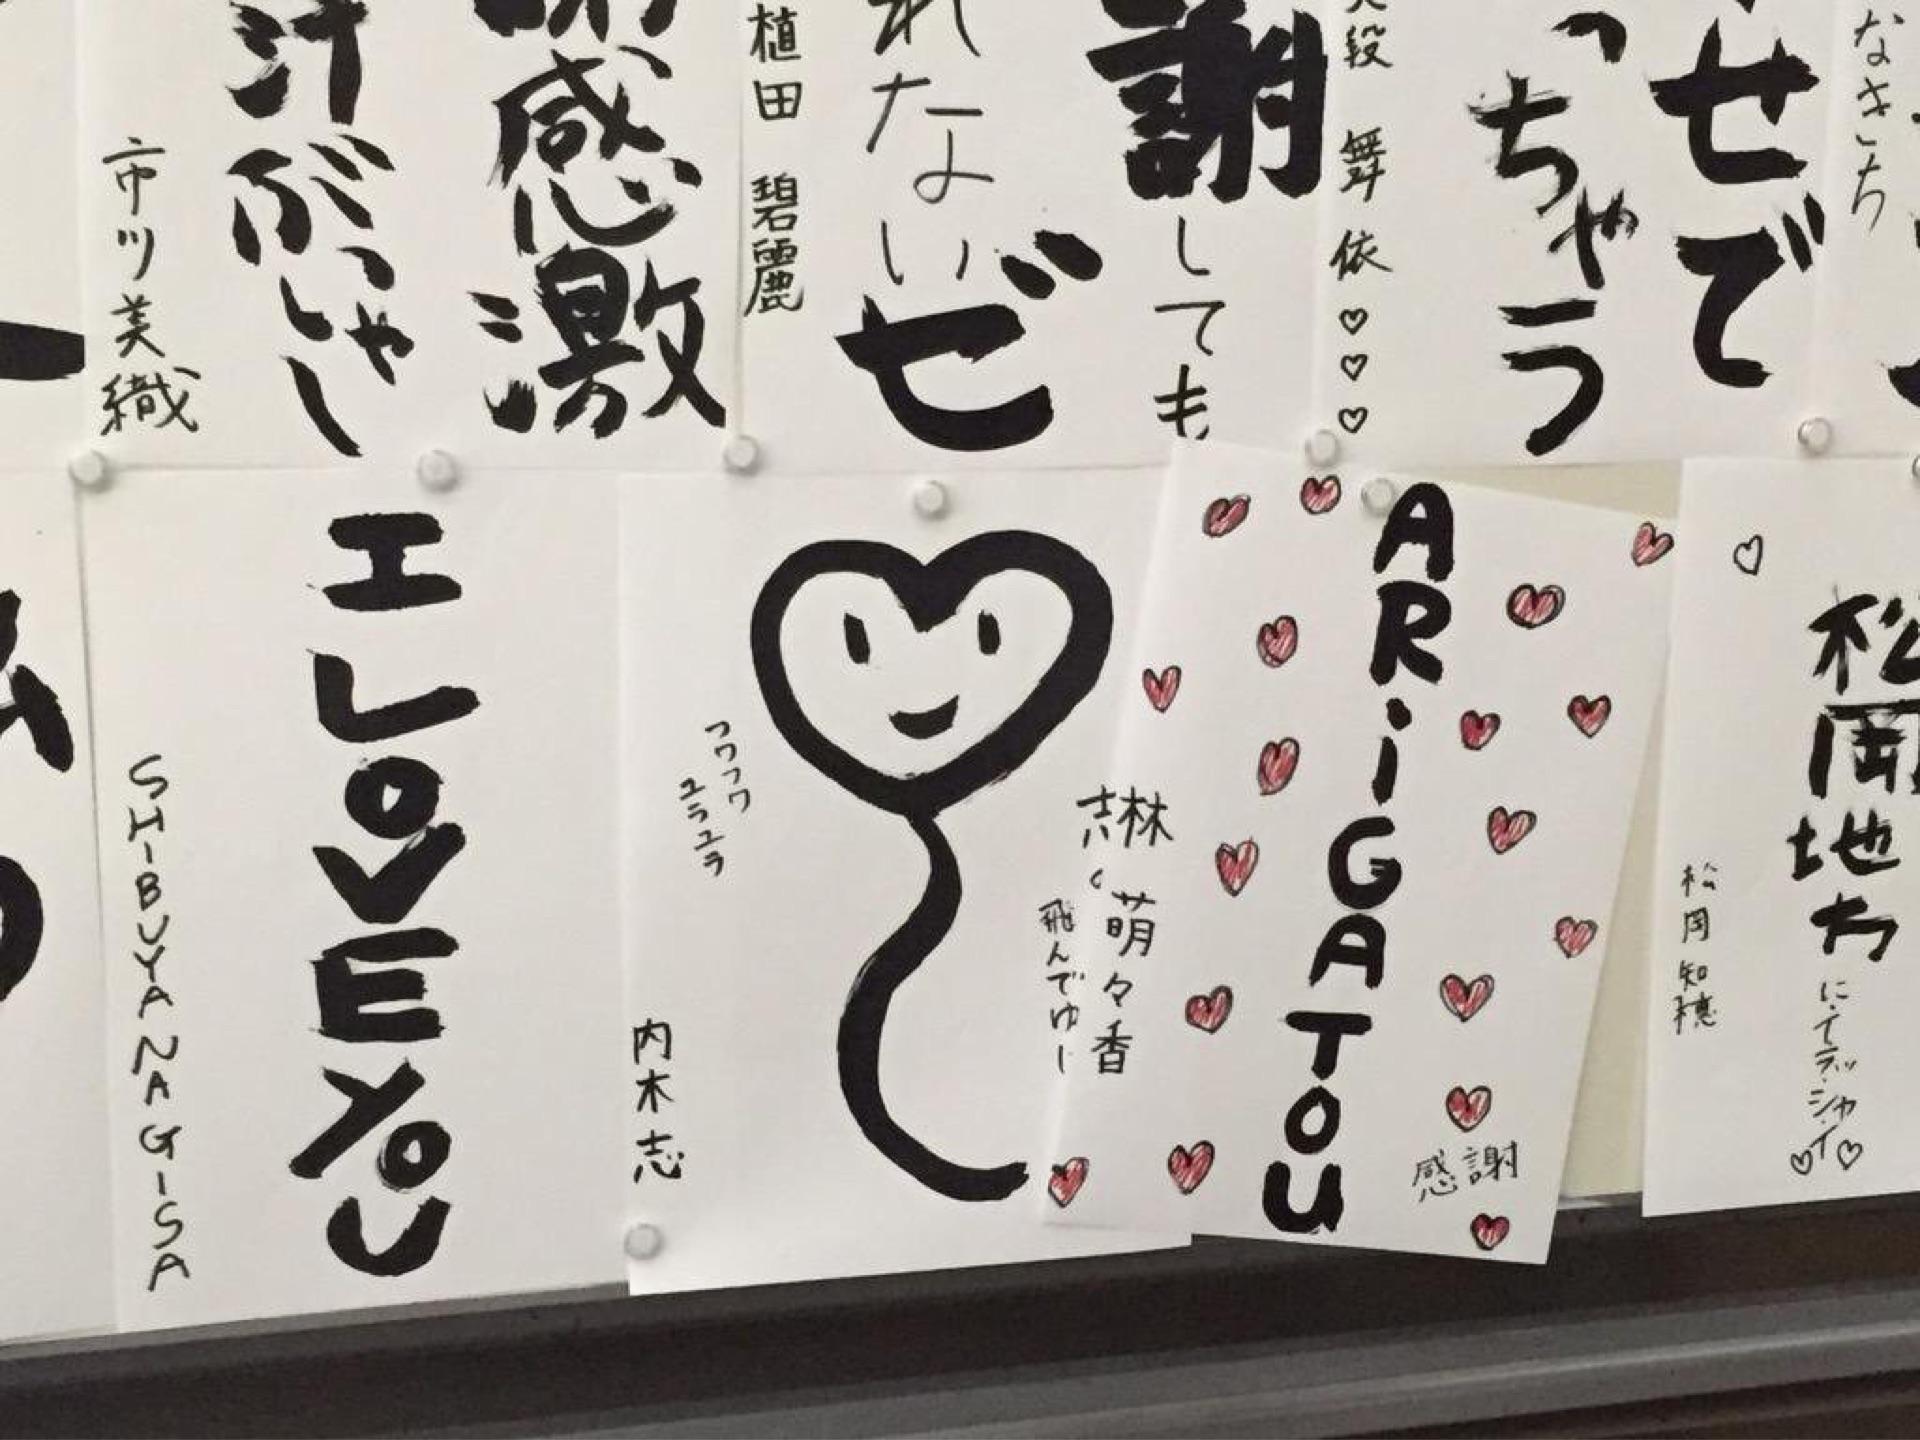 なきち
せで
っちゃう
段 舞依♡♡♡
謝しても
れないぜ
植田 碧麗
感激
汁がっしゃー
市川美織
I LOVE YOU
SHIBUYA NAGISA
フワフワ
ユラユラ
内木志
志、
飛んでゆー
ARiGATOU
林 萌々香
感謝
松岡地方
にてデッシャイ♡♡
松岡知穂